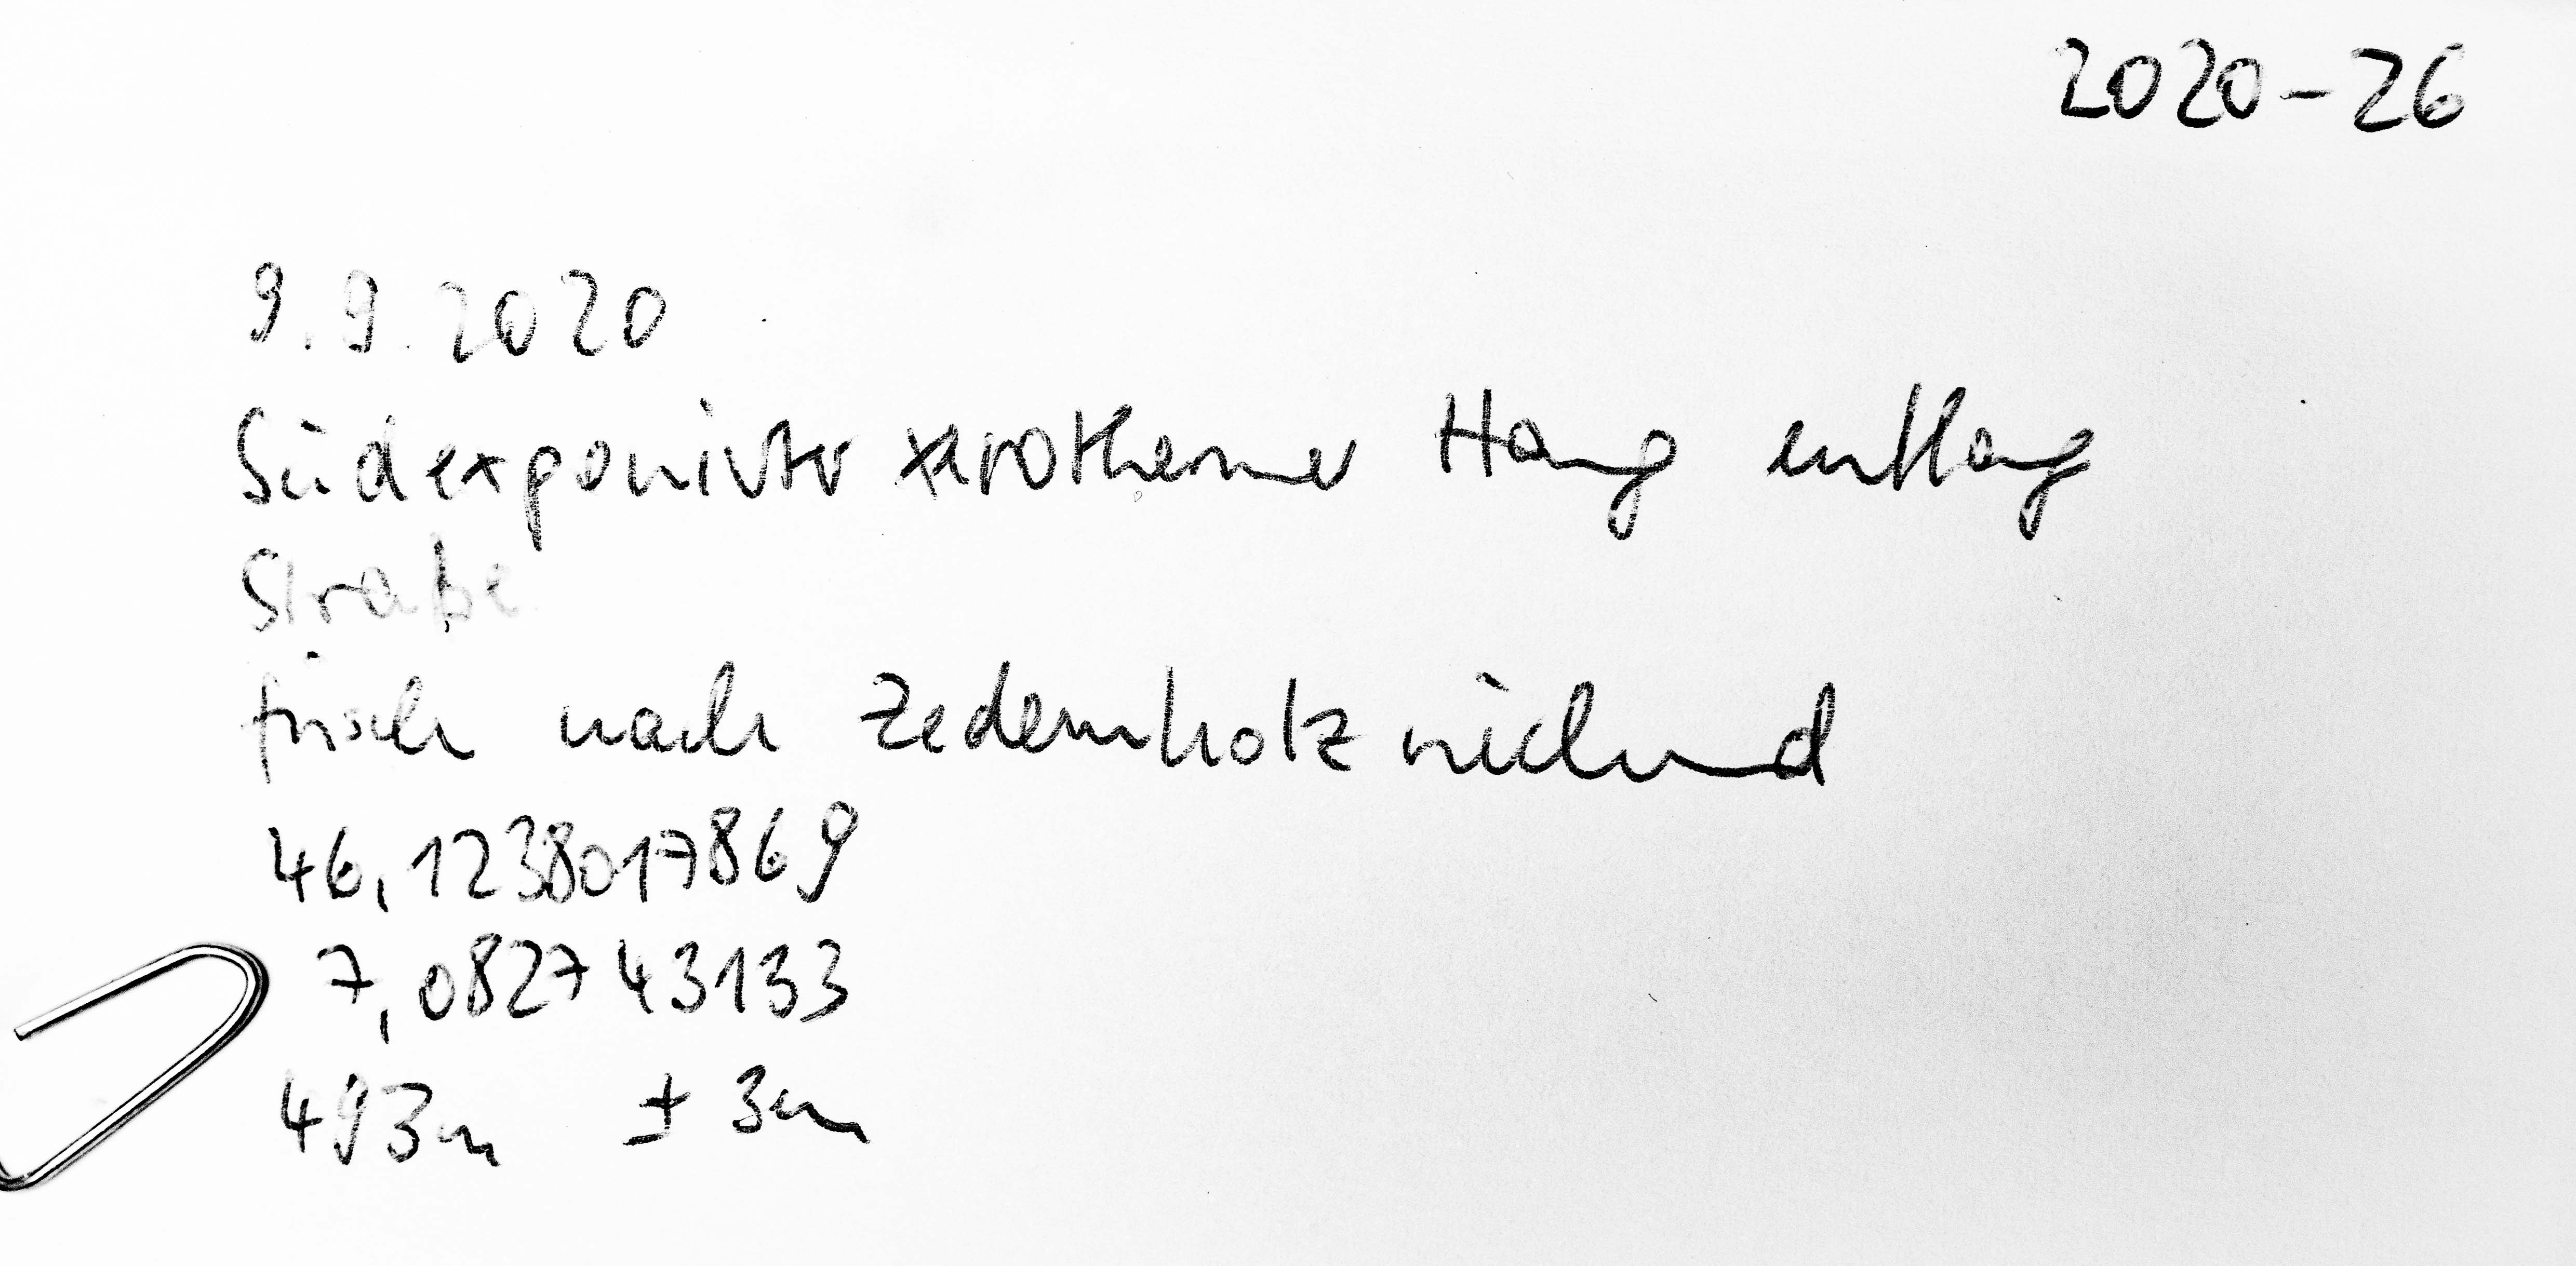 2020-26
9.9.2020
Südexponierter xerothermer Hang entlang
Straße
frisch nach Zedernholz riechend
46,1238017869
7,082743133
493m ± 3m